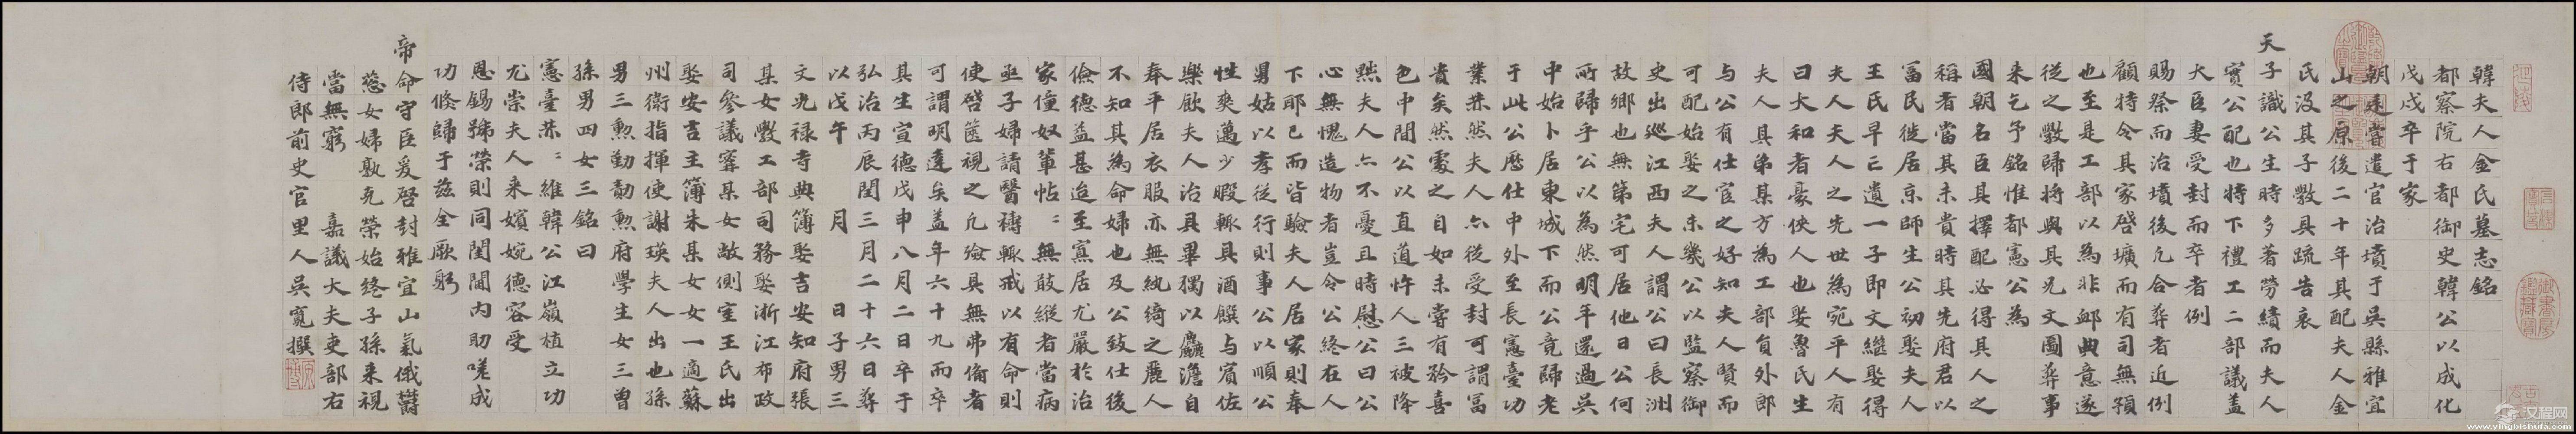 韓夫人金氏墓志銘
都察院右都御史韓公以成化
戊戌卒于家
朝廷嘗遣官治墳于吳縣雅宜
山之原後二十年其配夫人金
氏沒其子斆具疏告哀
天子識公生時多著勞績而夫人
實公配也特下禮工二部議蓋
大臣妻受封而卒者例
賜祭而治墳後凡合葬者近例
顧特令其家啓壙而有司無預
也至是工部以為非卹典意遂
從之斆歸將與其兄文圖葬事
来乞予銘惟都憲公為
國朝名臣其擇配必得其人之
稱者當其未貴時其先府君以
富民徙居京師生公初娶夫人
王氏早亡遺一子即文繼娶得
夫人夫人之先世為宛平人有
曰大和者豪俠人也娶魯氏生
夫人其弟某方為工部員外郎
与公有仕宦之好知夫人賢而
可配始娶之未幾公以監察御
史出巡江西夫人謂公曰長洲
故鄉也無第宅可居他日公何
所歸乎公以為然明年還過吳
中始卜居東城下而公竟歸老
于此公歷仕中外至長憲臺功
業赫然夫人亦從受封可謂富
貴矣然處之自如未嘗有矜喜
色中間公以直道忤人三被降
黜夫人亦不憂且時慰公曰公
心無愧造物者豈令公終在人
下耶已而皆驗夫人居家則奉
舅姑以孝從行則事公以順公
性爽邁少暇輒具酒饌与賓佐
樂飲夫人治具畢獨以麤澹自
奉平居衣服亦無紈綺之麗人
不知其為命婦也及公致仕後
儉德益甚迨至寡居尤嚴於治
家僮奴輩帖〻無敢縱者當病
亟子婦請醫禱輒戒以有命則
使啓篋視之凡殮具無弗備者
可謂明達矣蓋年六十九而卒
其生宣德戊申八月二日卒于
弘治丙辰閏三月二十六日葬
以戊午 月 日子男三
文光禄寺典簿娶吉安知府張
某女斆工部司務娶浙江布政
司參議寗某女敞側室王氏出
娶安吉主簿朱某女女一適蘇
州衛指揮使謝瑛夫人出也孫
男三勲勤勣勲府學生女三曾
孫男四女三銘曰
憲臺赫〻維韓公江嶺植立功
尤崇夫人来嬪婉德容受
恩錫號榮則同閨閫内助嗟成
功倏歸于兹全厥躬
帝命守臣爰啓封雅宜山氣俄欝
慈女婦孰克榮始終子孫来視
當無窮 嘉議大夫吏部右
侍郎前史官里人吳寬撰
汉程网
www.yingbishufa.com